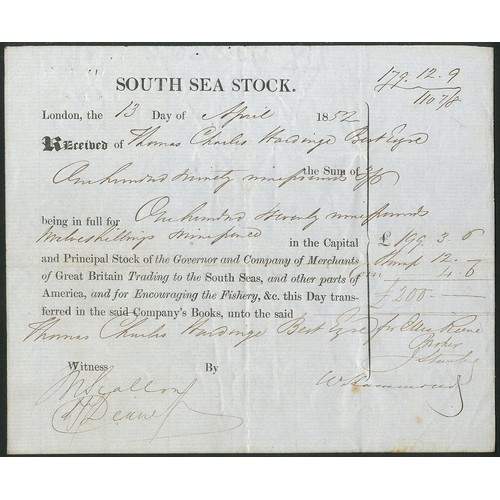 179. 12. 9
110 7/8
SOUTH SEA STOCK.
London, the 13 Day of April 1852
Received of Thomas Charles Hardinge Best Esqre
the Sum of
One hundred ninety nine pounds 3/6
being in full for One hundred seventy nine pounds
twelve shillings & nine pence in the Capital
and Principal Stock of the Governor and Company of Merchants
of Great Britain Trading to the South Seas, and other parts of
America, and for Encouraging the Fishery, &c. this Day trans-
ferred in the said Company's Books, unto the said
Thomas Charles Hardinge Best Esqre
£ 199. 3. 6
Stamp 12. -
Com 4. 6
£200 - -
for
Broker
Witness By